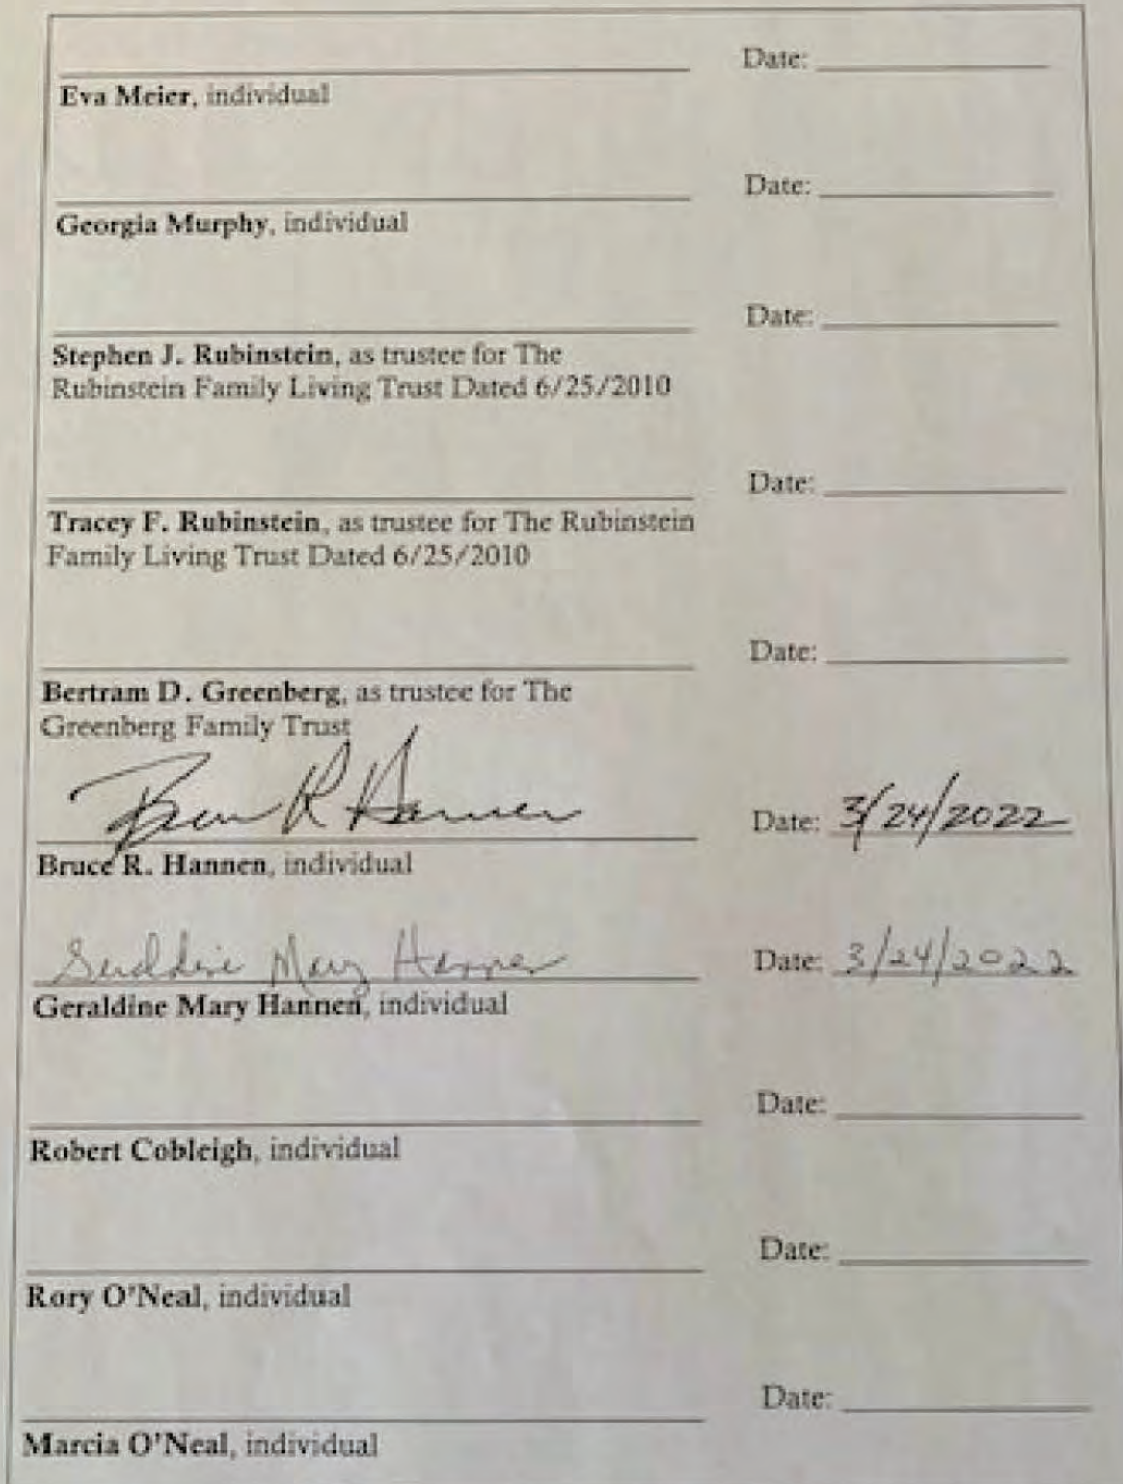 Date:
Eva Meier, individual
Date:
Georgia Murphy, individual
Date:
Stephen J. Rubinstein, as trustee for The
Rubinstein Family Living Trust Dated 6/25/2010
Date:
Tracey F. Rubinstein, as trustee for The Rubinstein
Family Living Trust Dated 6/25/2010
Date:
Bertram D. Greenberg, as trustee for The
Greenberg Family Trust
Bruce R Hannen Date: 3/24/2022
Bruce R. Hannen, individual
Geraldine Mary Hannen Date: 3/24/2022
Geraldine Mary Hannen, individual
Date:
Robert Cobleigh, individual
Date:
Rory O'Neal, individual
Date:
Marcia O'Neal, individual